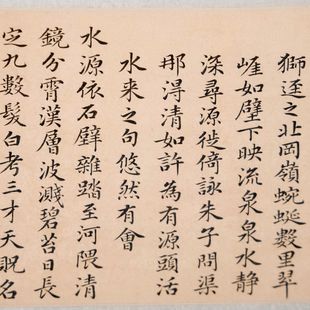 獅逕之北岡嶺蜿蜒數里翠
崕如壁下映流泉泉水静
深尋源徙倚詠朱子問渠
那淂清如許為有源頭活
水来之句悠然有會
水源依石壁雜踏至河隈清
鏡分霄漢層波濺碧苔日長
定九數髮白考三才天貺名